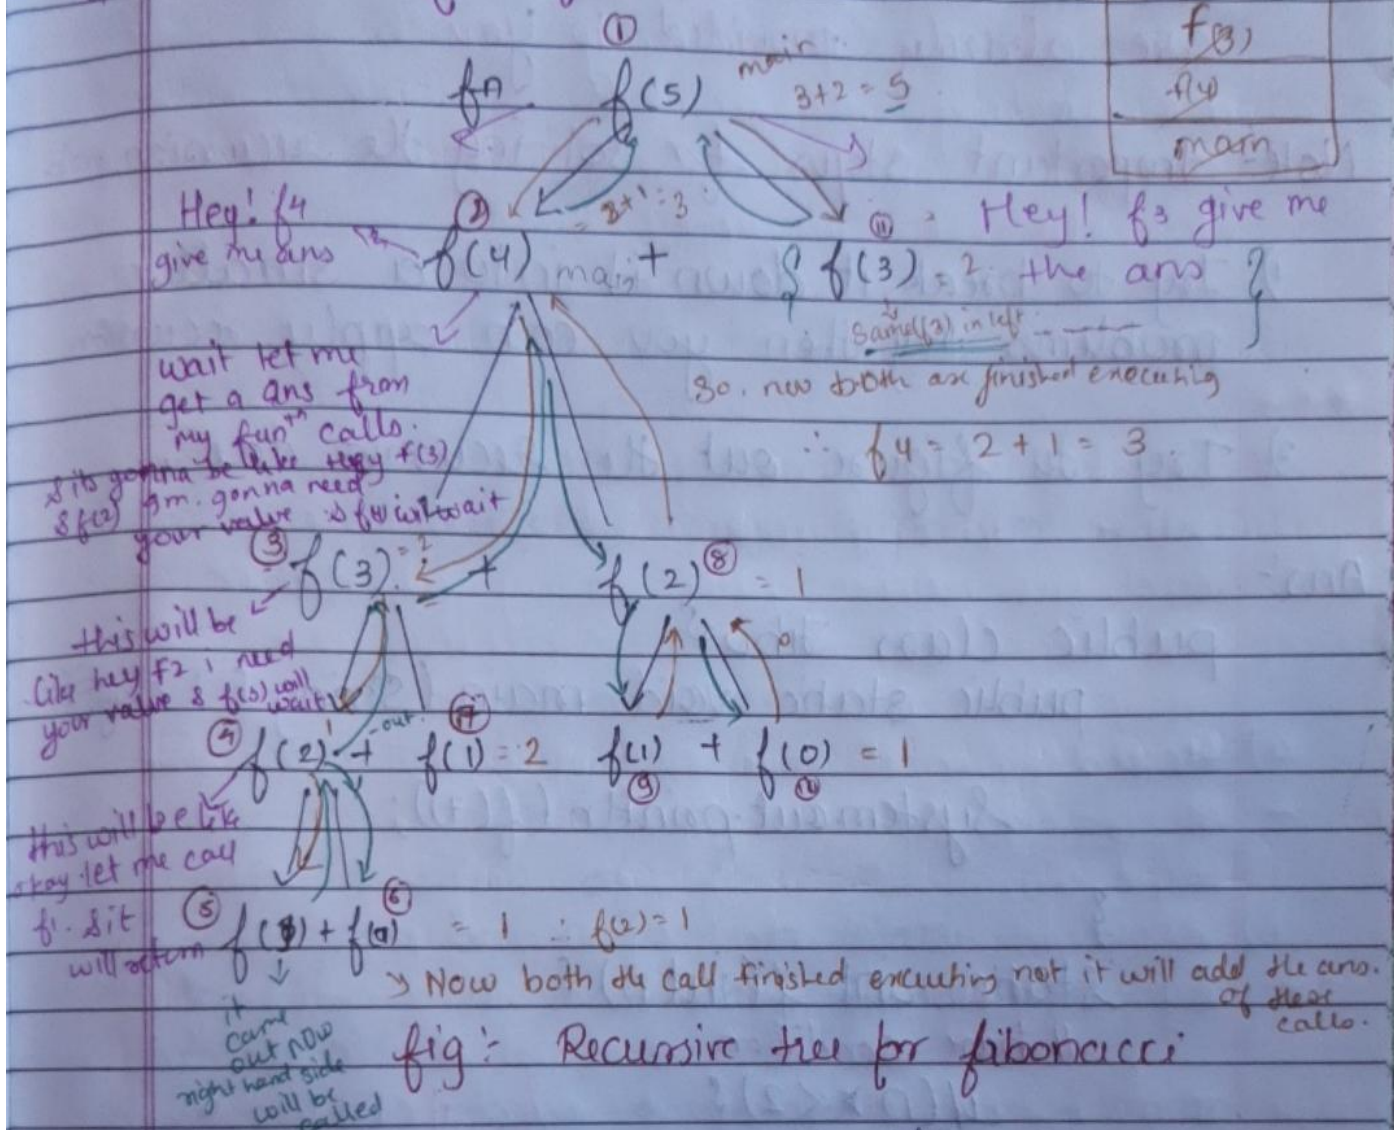 ①
fn f(5) main 3+2 = 5
f(3)
f(4)
main
Hey! f4
give me ans
② = 2+1 = 3
f(4) main +
⑪ = Hey! f3 give me
{ f(3) = 2 the ans }
Same f(3) in left
So, now both are finished executing
∴ f4 = 2 + 1 = 3
wait let me
get a ans from
my funtn calls.
& its gonna be like hey f(3)
& f(2) I'm gonna need
your value & f(4) will wait
③ f(3) = 2 + f(2) ⑧ = 1
this will be
like hey f2 i need
your value & f(3) will
wait
④ f(2) + f(1) = 2
1 out
⑦
0
f(1) + f(0) = 1
⑨ ⑩
this will be like
okay let me call
f1. & it
will return
⑤ f(1) + f(0) ⑥ = 1 ∴ f(2) = 1
→ Now both the call finished executing not it will add the ans.
of these
calls.
it
came
out now
right hand side
will be
called
fig :- Recursive tree for fibonacci